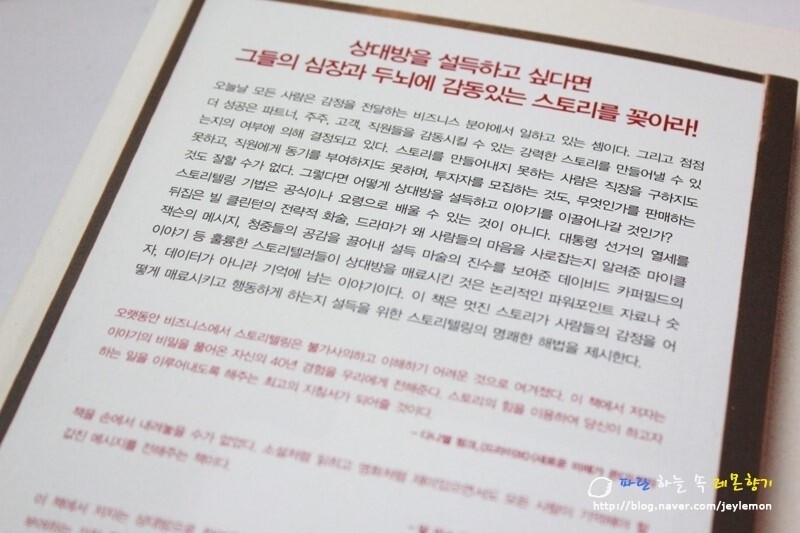 상대방을 설득하고 싶다면
그들의 심장과 두뇌에 감동있는 스토리를 꽂아라!
오늘날 모든 사람은 감정을 전달하는 비즈니스 분야에서 일하고 있는 셈이다. 그리고 점점
더 성공은 파트너, 주주, 고객, 직원들을 감동시킬 수 있는 강력한 스토리를 만들어낼 수 있
는지의 여부에 의해 결정되고 있다. 스토리를 만들어내지 못하는 사람은 직장을 구하지도
못하고, 직원에게 동기를 부여하지도 못하며, 투자자를 모집하는 것도, 무엇인가를 판매하는
것도 잘할 수가 없다. 그렇다면 어떻게 상대방을 설득하고 이야기를 이끌어나갈 것인가?
스토리텔링 기법은 공식이나 요령으로 배울 수 있는 것이 아니다. 대통령 선거의 열세를
뒤집은 빌 클린턴의 전략적 화술, 드라마가 왜 사람들의 마음을 사로잡는지 알려준 마이클
잭슨의 메시지, 청중들의 공감을 끌어내 설득 마술의 진수를 보여준 데이비드 카퍼필드의
이야기 등 훌륭한 스토리텔러들이 상대방을 매료시킨 것은 논리적인 파워포인트 자료나 숫
자, 데이터가 아니라 기억에 남는 이야기이다. 이 책은 멋진 스토리가 사람들의 감정을 어
떻게 매료시키고 행동하게 하는지 설득을 위한 스토리텔링의 명쾌한 해법을 제시한다.
오랫동안 비즈니스에서 스토리텔링은 불가사의하고 이해하기 어려운 것으로 여겨졌다. 이 책에서 저자는
이야기의 비밀을 풀어온 자신의 40년 경험을 우리에게 전해준다. 스토리의 힘을 이용하여 당신이 하고자
하는 일을 이루어내도록 해주는 최고의 지침서가 되어줄 것이다.
- 다니엘 핑크, 《드라이브》 《새로운 미래가
책을 손에서 내려놓을 수가 없었다. 소설처럼 읽히고 영화처럼 재미있으면서도 모든 사람이 기억해야 할
값진 메시지를 전해주는 책이다.
이 책에서 저자는 상대방으로
파란 하늘 속 레몬향기
http://blog.naver.com/jeylemon